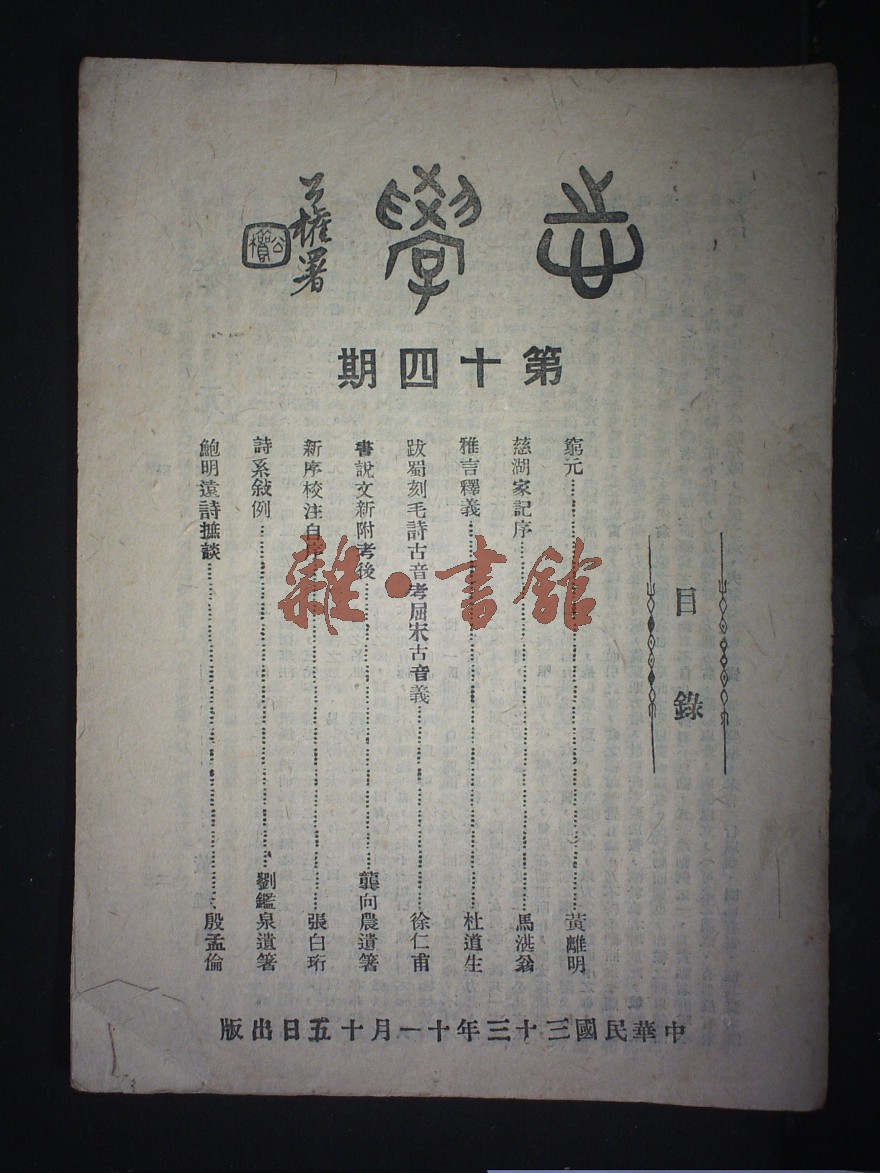 志學
公權署
公權
第十四期
目錄
窮元……黃離明
慈湖家記序……馬湛翁
雅言釋義……杜道生
跋蜀刻毛詩古音考屈宋古音義……徐仁甫
書說文新附考後……龔向農遺箸
新序校注自序……張白珩
詩系敍例……劉鑑泉遺箸
鮑明遠詩摭談……殷孟倫
中華民國三十三年十一月十五日出版
雜·書館